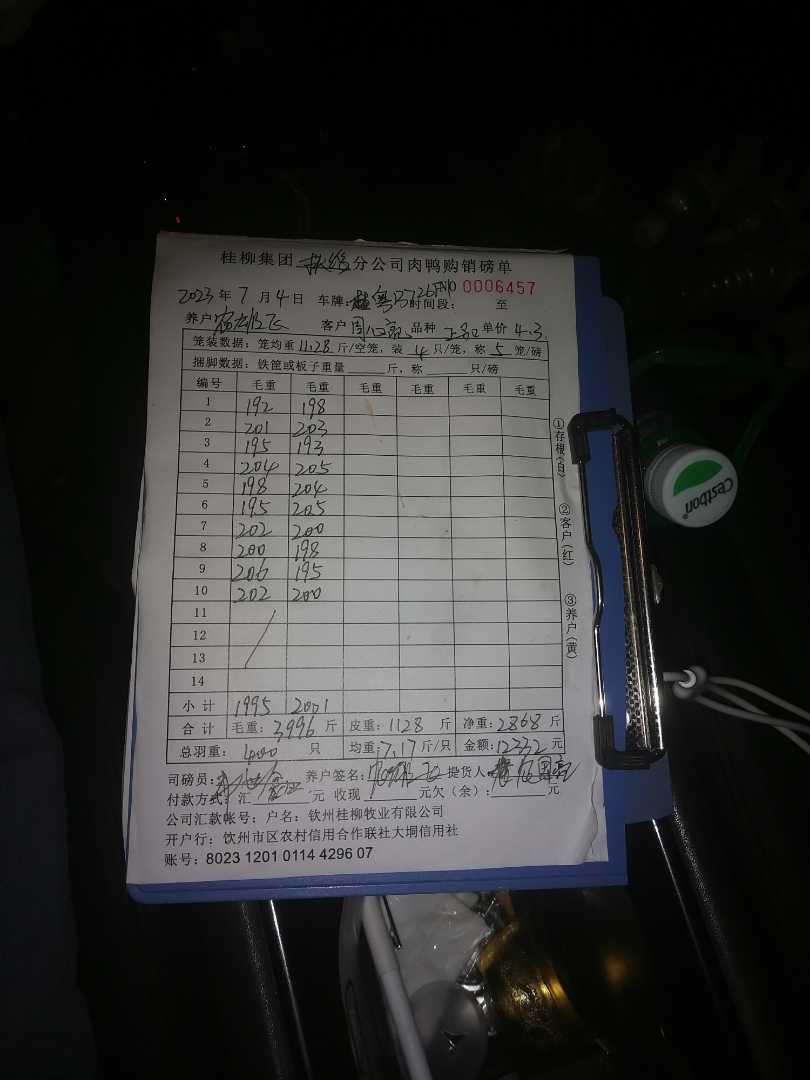 桂柳集团 扶绥 分公司肉鸭购销磅单
NO 0006457
2023 年 7 月 4 日 车牌: 粤 时间段: 至
养户: 客户 周 品种 单价 4.3
笼装数据: 笼均重 11.28 斤/空笼, 装 4 只/笼, 称 5 笼/磅
捆脚数据: 铁筐或板子重量 斤, 称 只/磅
编号 毛重 毛重 毛重 毛重 毛重 毛重
1 192 198
2 201 203
3 195 193
4 204 205
5 198 204
6 195 205
7 202 200
8 200 198
9 206 195
10 202 200
11
12
13
14
小计 1995 2001
合计 毛重: 3996 斤 皮重: 1128 斤 净重: 2868 斤
总羽重: 400 只 均重: 7.17 斤/只 金额: 12332 元
司磅员: 养户签名: 提货人
付款方式: 汇 元 收现 元欠(余): 元
公司汇款帐号: 户名: 钦州桂柳牧业有限公司
开户行: 钦州市区农村信用合作联社大垌信用社
账号: 8023 1201 0114 4296 07
①存根(白)
②客户(红)
③养户(黄)
Cestbon®